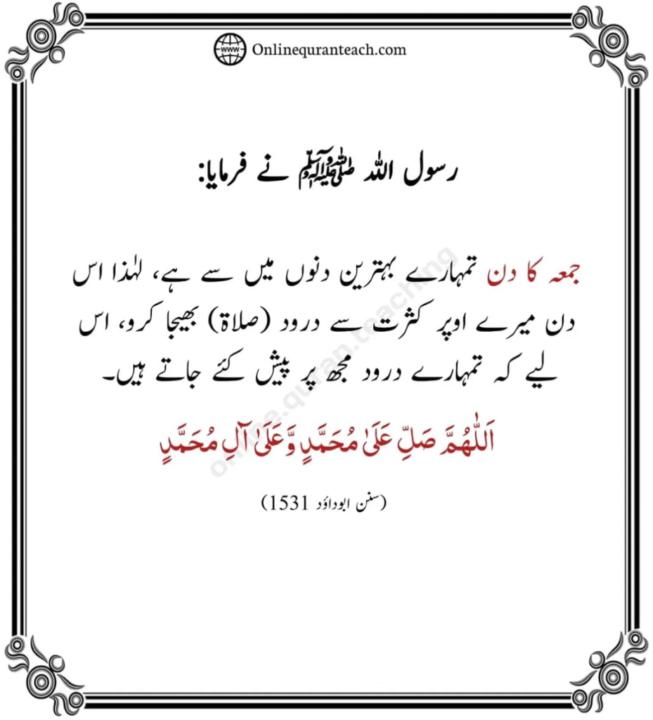 Onlinequranteach.com
رسول اللہ ﷺ نے فرمایا:
جمعہ کا دن تمہارے بہترین دنوں میں سے ہے، لہٰذا اس
دن میرے اوپر کثرت سے درود (صلاۃ) بھیجا کرو، اس
لیے کہ تمہارے درود مجھ پر پیش کئے جاتے ہیں۔
اَللّٰهُمَّ صَلِّ عَلَىٰ مُحَمَّدٍ وَّعَلَىٰ آلِ مُحَمَّدٍ
(سنن ابوداؤد 1531)
online.quran.teaching